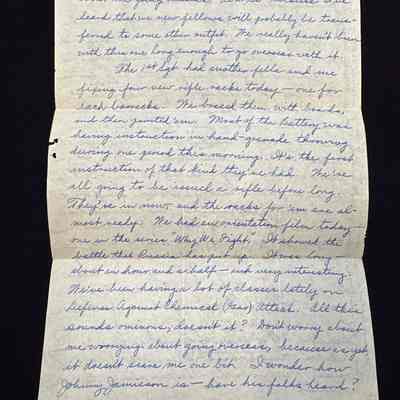 heard that we new fellows will probably be trans-
ferred to some other outfit. We really haven't been
with this one long enough to go overseas with it.
The 1st Sgt. had another fella and me
fixing four new rifle racks today — one for
each barracks. We braced them with boards,
and then painted 'em. Most of the Battery was
having instruction in hand-grenade throwing
during one period this morning. It's the first
instruction of that kind they've had. We're
all going to be issued a rifle before long.
They're in now and the racks for 'em are al-
most ready. We had an orientation film today —
one in the series "Why We Fight." It showed the
battle that Russia has put up. It was long —
about an hour and a half — and very interesting.
We've been having a lot of classes lately on
Defense Against Chemical (Gas) Attack. All this
sounds ominous, doesn't it? Don't worry about
me worrying about going overseas, because as yet,
it doesn't scare me one bit. I wonder how
Johnny Jamieson is — have his folks heard?